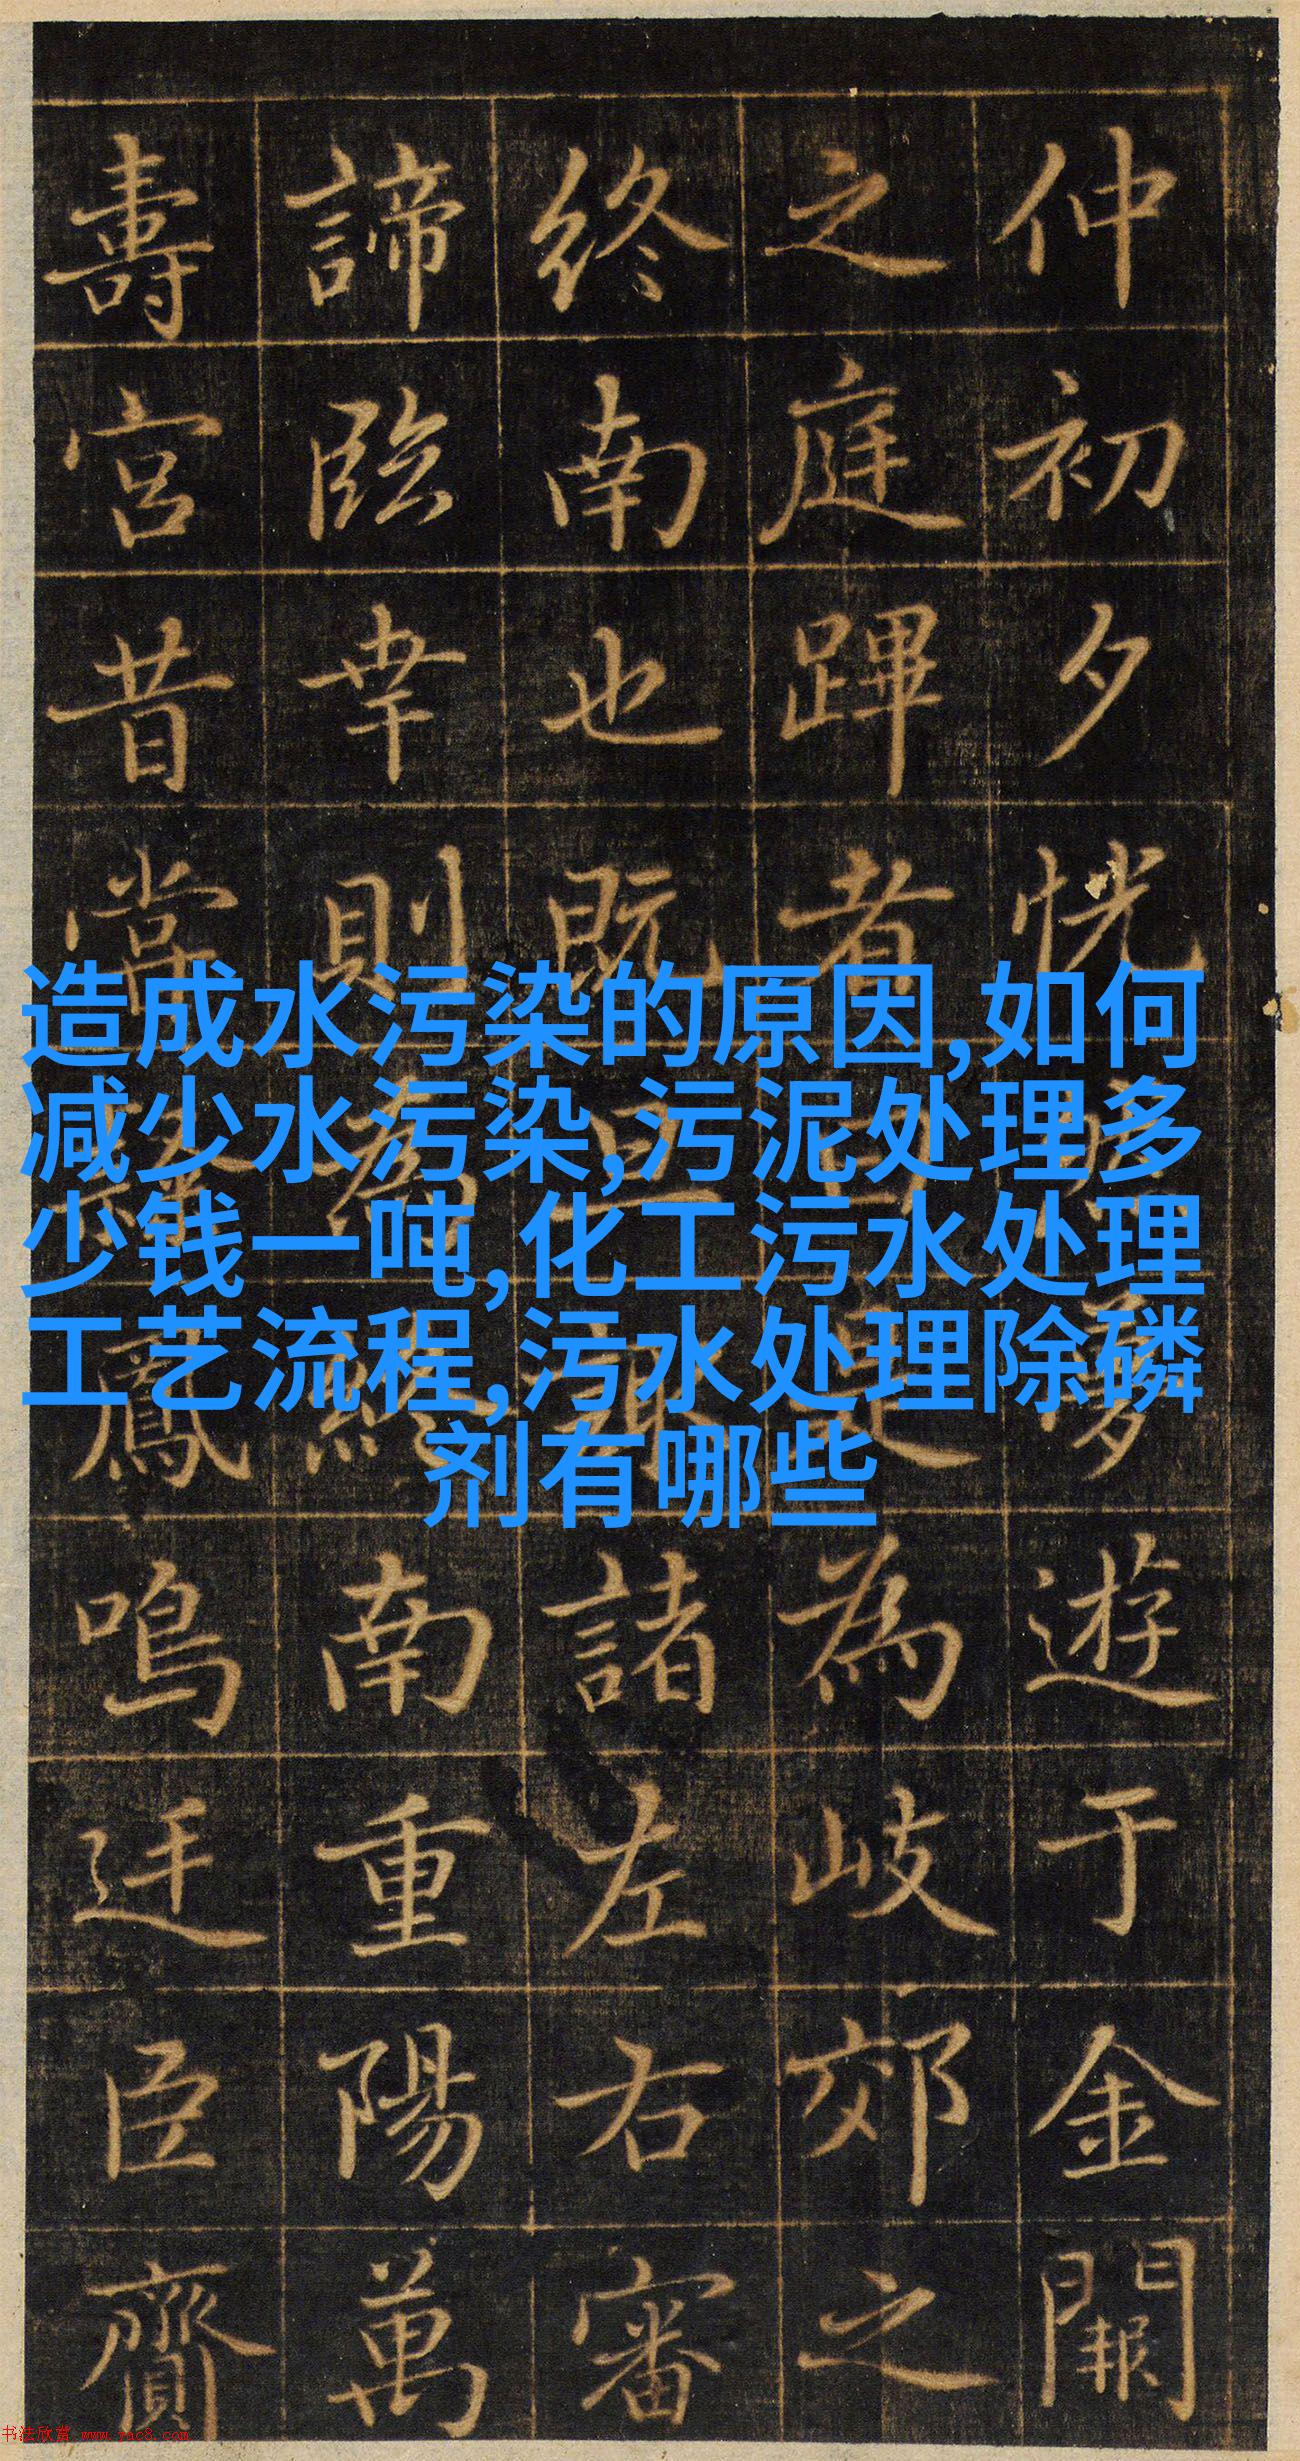 仲初夕恍遊于金闕
之庭蹕者為岐郊之
終南也既諸左右審
諦臨幸則南重陽萬
壽宮昔嘗鳳鳴迋臣齎
造成水污染的原因,如何
减少水污染,污泥处理多
少钱一吨,化工污水处理
工艺流程,污水处理除磷
剂有哪些
书法欣赏 www.yac8.com